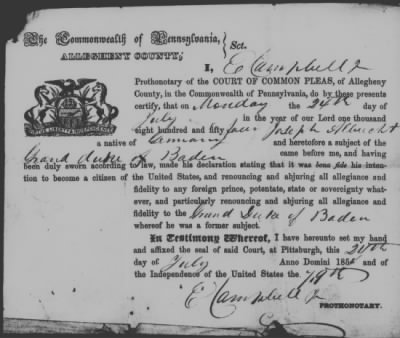 The Commonwealth of Pennsylvania,
ALLEGHENY COUNTY,
} Sct.
I, E Campbell Jr
Prothonotary of the COURT OF COMMON PLEAS, of Allegheny
County, in the Commonwealth of Pennsylvania, do by these presents
certify, that on Monday the 24th day of
July in the year of our Lord one thousand
eight hundred and fifty four Joseph
a native of Germany and heretofore a subject of the
Grand Duke of Baden came before me, and having
been duly sworn according to law, made his declaration stating that it was bona fide his inten-
tion to become a citizen of the United States, and renouncing and abjuring all allegiance and
fidelity to any foreign prince, potentate, state or sovereignty whatev-
er, and particularly renouncing and abjuring all allegiance and
fidelity to the Grand Duke of Baden
whereof he was a former subject.
In Testimony Whereof, I have hereunto set my hand
and affixed the seal of said Court, at Pittsburgh, this
day of July Anno Domini 185 and of
the Independence of the United States the 79th
E Campbell Jr
PROTHONOTARY.